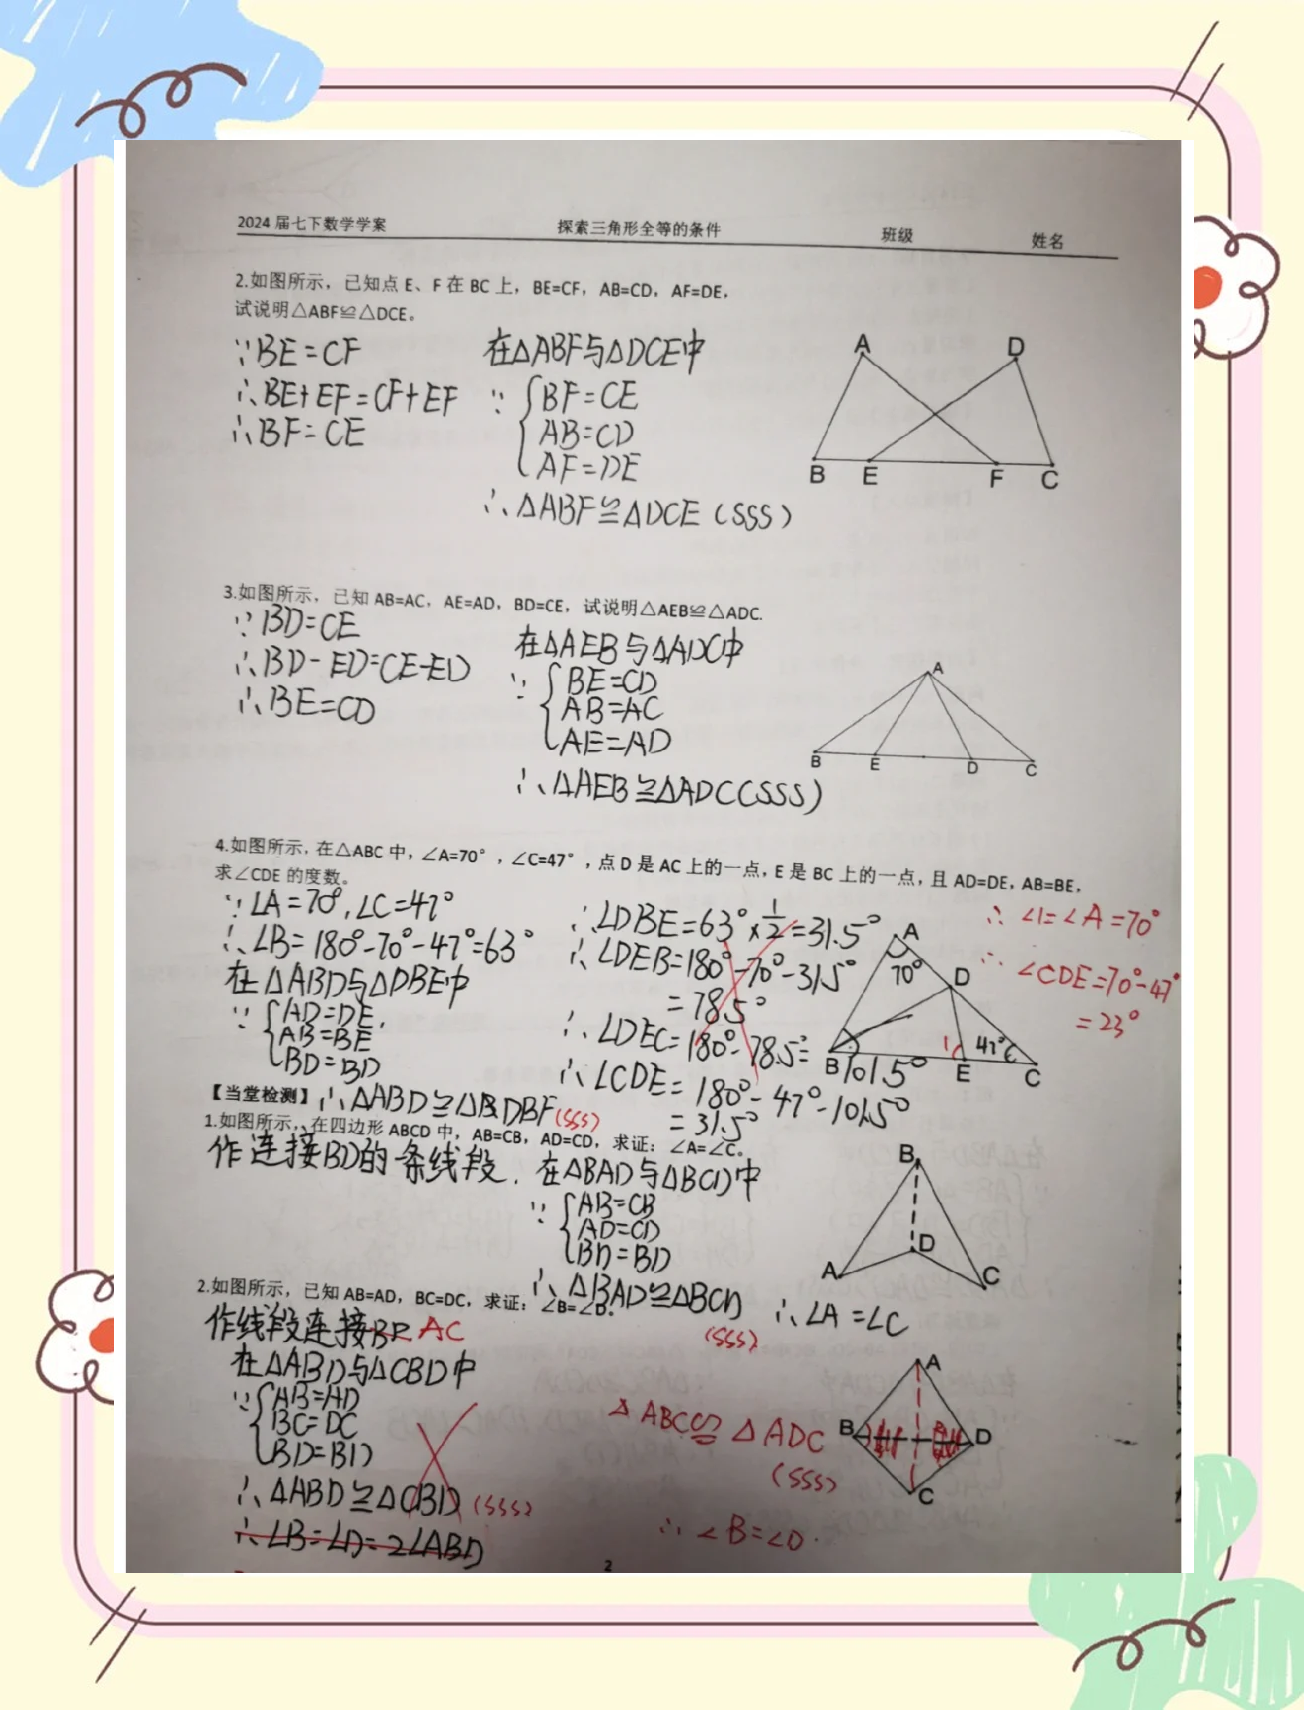 2024 届七下数学学案 探索三角形全等的条件 班级 姓名
2.如图所示，已知点 E、F 在 BC 上，BE=CF，AB=CD，AF=DE，
试说明△ABF≌△DCE。
∵BE=CF
∴BE+EF=CF+EF
∴BF=CE
在△ABF与△DCE中
∵ BF=CE
AB=CD
AF=DE
∴△ABF≌△DCE（SSS）
A D
B E F C
3.如图所示，已知 AB=AC，AE=AD，BD=CE，试说明△AEB≌△ADC.
∵BD=CE
∴BD-ED=CE-ED
∴BE=CD
在△AEB与△ADC中
∵ BE=CD
AB=AC
AE=AD
∴△AEB≌△ADC(SSS)
A
B E D C
4.如图所示，在△ABC 中，∠A=70°，∠C=47°，点 D 是 AC 上的一点，E 是 BC 上的一点，且 AD=DE，AB=BE，
求∠CDE 的度数。
∵∠A=70°,∠C=47°
∴∠B=180°-70°-47°=63°
在△ABD与△DBE中
∵ AD=DE,
AB=BE
BD=BD
∴△ABD≌△DBE(SSS)
∴∠DBE=63°×1/2=31.5°
∴∠DEB=180°-70°-31.5°
=78.5°
∴∠DEC=180°-78.5°=
101.5°
∴∠CDE=180°-47°-101.5°
=31.5°
∴∠1=∠A=70°
∴∠CDE=70°-47°
=23°
A
70° D
1 47°
B E C
【当堂检测】
1.如图所示，在四边形 ABCD 中，AB=CB，AD=CD，求证：∠A=∠C。
作连接BD的一条线段.
在△BAD与△BCD中
∵ AB=CB
AD=CD
BD=BD
∴△BAD≌△BCD
(SSS)
∴∠A=∠C
B
D
A C
2.如图所示，已知 AB=AD，BC=DC，求证：∠B=∠D。
作线段连接 AC
在△ABD与△CBD中
∵ AB=AD
BC=DC
BD=BD
∴△ABD≌△CBD (SSS)
∴∠B=∠D=2∠ABD
△ABC≌△ADC
(SSS)
∴∠B=∠D.
A
B D
C
2